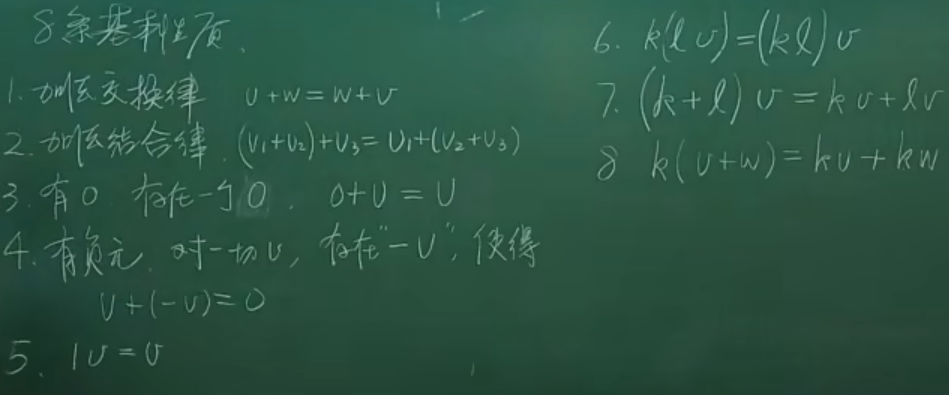 8条基本性质、
1. 加法交换律 v+w=w+v
2. 加法结合律. (v₁+v₂)+v₃=v₁+(v₂+v₃)
3. 有0 存在一个0. 0+v=v
4. 有负元. 对一切v, 存在"-v", 使得
v+(-v)=0
5. 1v=v
6. k(lv)=(kl)v
7. (k+l)v=kv+lv
8 k(v+w)=kv+kw